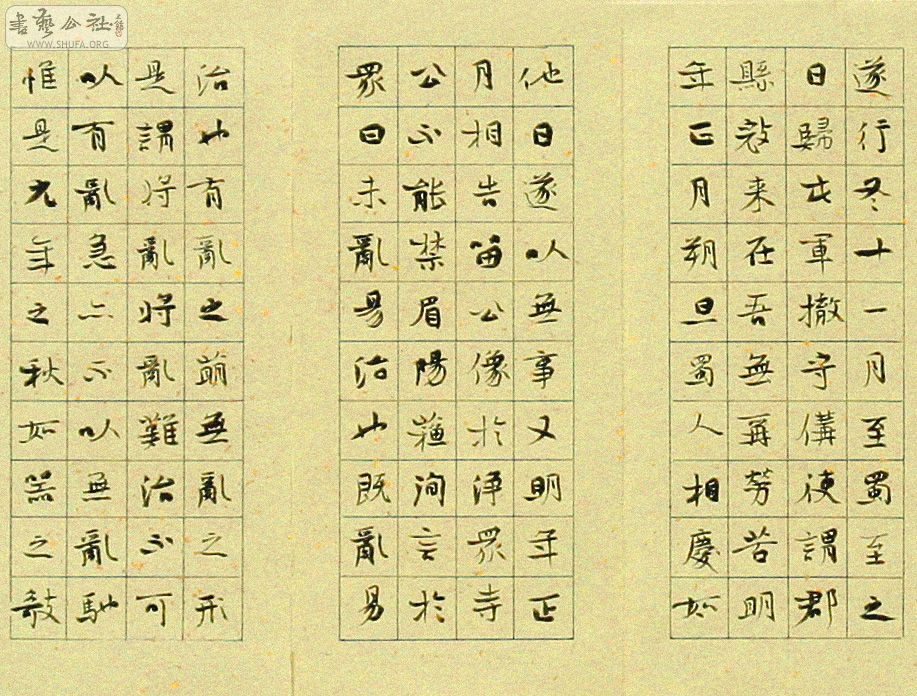 書藝公社
WWW.SHUFA.ORG
遂行冬十一月至蜀至之
日歸屯軍撤守備使謂郡
縣寇来在吾無再勞苦明
年正月朔旦蜀人相慶如
他日遂以無事又明年正
月相告留公像於淨眾寺
公不能禁眉陽蘓洵言於
眾曰未亂易治也既亂易
治也有亂之萌無亂之形
是謂將亂將亂難治不可
以有亂急亦不以無亂馳
惟是元年之秋如器之敧